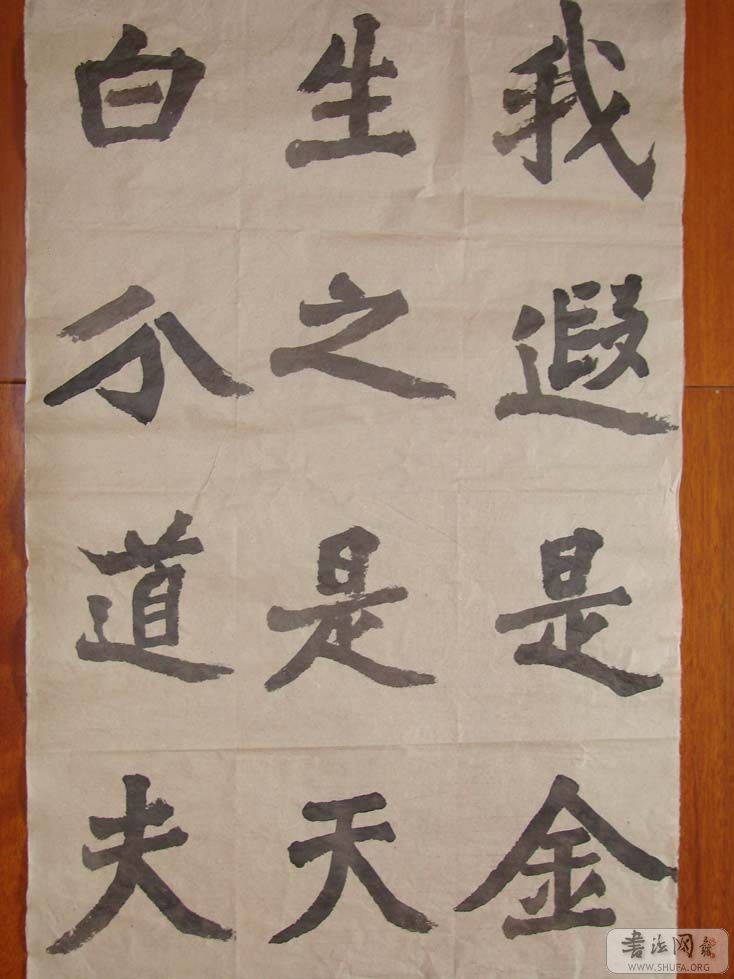 我遐是金
生之是天
白道夫
書法网
WWW.SHUFA.ORG